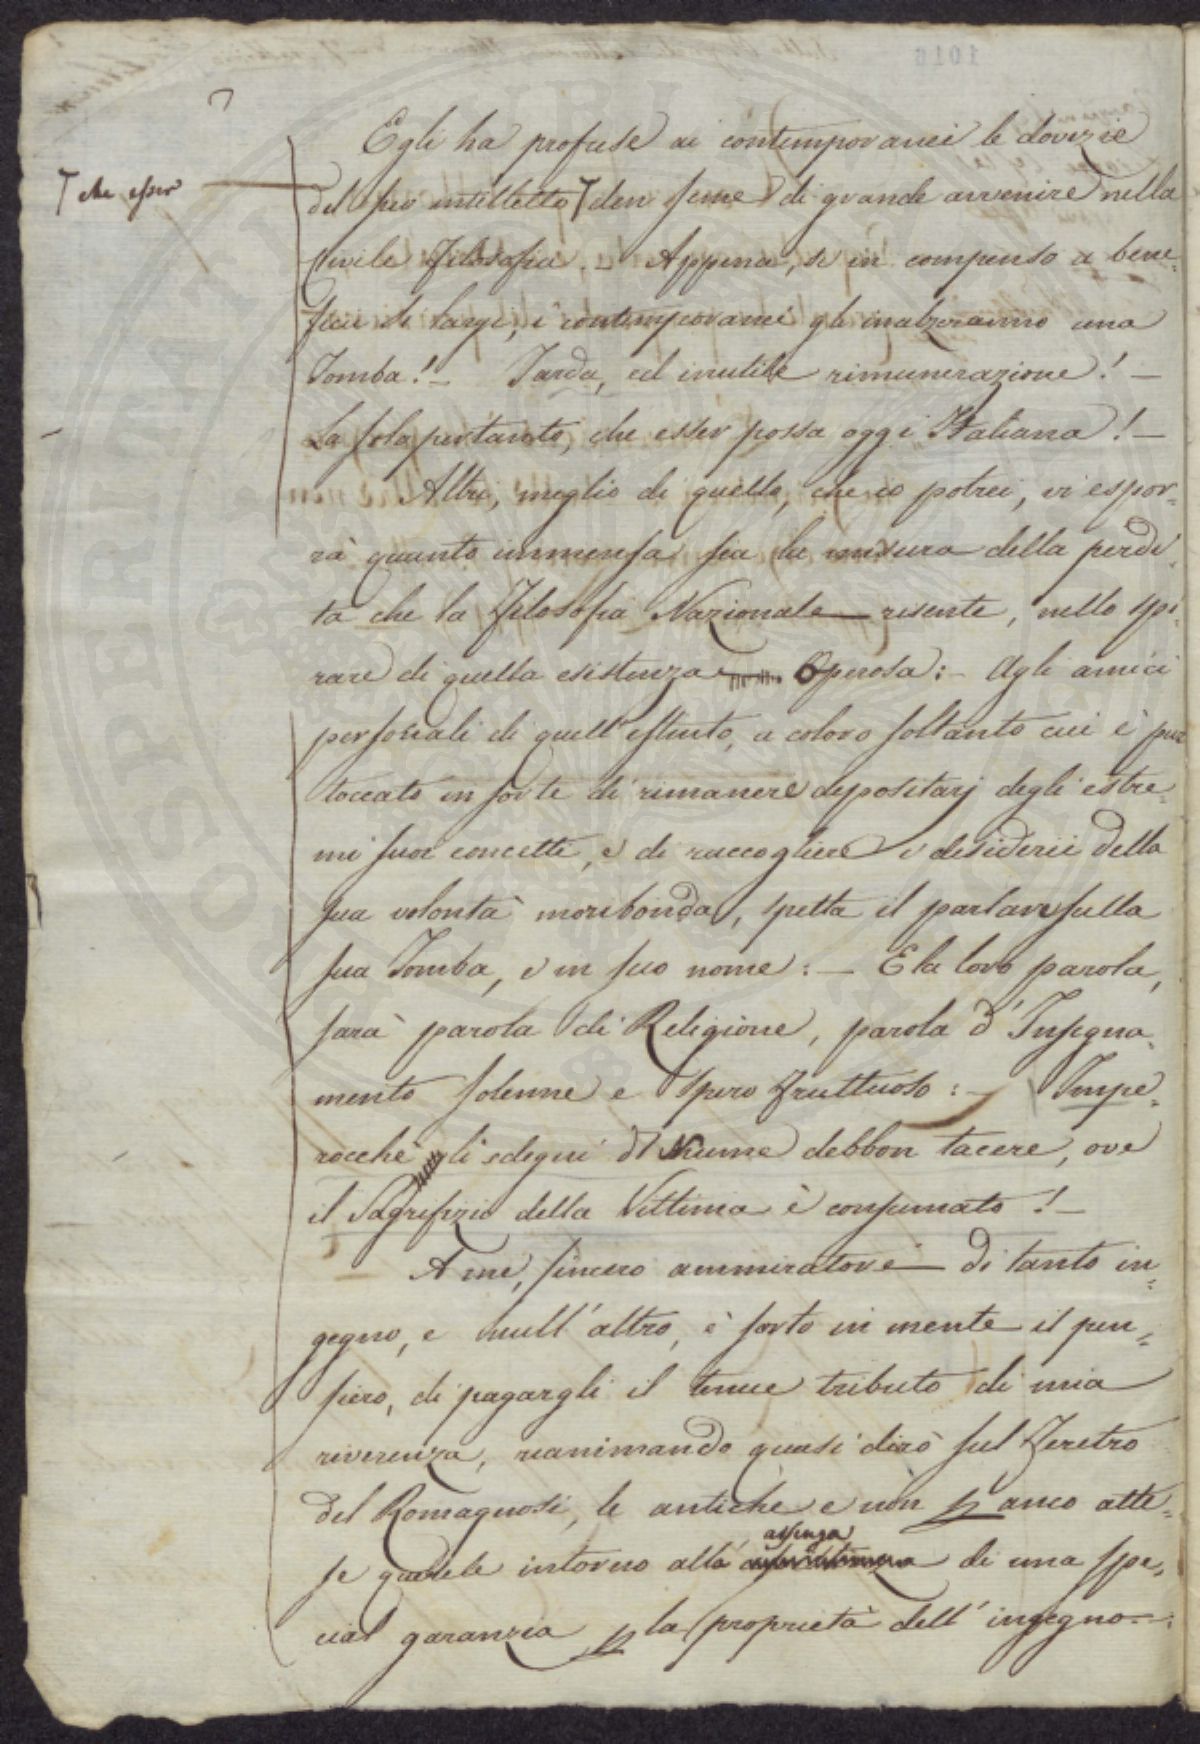 1016
Egli ha profuse ai contemporanei le dovizie
che esser
del suo intelletto, den seme di grande avvenire nella
Civile Filosofia. _ Appena, se in compenso a bene=
ficii sì largi, i contemporanei gli inalzeranno una
Tomba! _ Tarda, ed inutile rimunerazione! _
La sola pertanto, che esser possa oggi Italiana! _
Altri, meglio di quello, che io potrei, vi espor=
rà quanto immensa sia la misura della perdi=
ta che la Filosofia Nazionale risente, nello spi=
rare di quella esistenza Operosa: _ Agli amici
personali di quell'estinto, a coloro soltanto cui è pur
toccato in sorte di rimanere depositarj degli estre=
mi suoi concetti, e di raccogliere i desiderii della
sua volontà moribonda, spetta il parlare sulla
sua Tomba, e in suo nome: _ E la loro parola,
sarà parola di Religione, parola d'Insegna=
mento solenne e spero fruttuoso: _ Impe=
rocchè gli sdegni di Nume debbon tacere, ove
il Sagrifizio della Vittima è consumato! _
A me, sincero ammiratore di tanto in=
gegno, e null'altro, è sorto in mente il pen=
siero, di pagargli il tenue tributo di mia
riverenza, rianimando quasi dirò sul Feretro
del Romagnosi, le antiche e non p anco atte=
assenza
se querele intorno alla di una spe=
cial garanzia p la proprietà dell'ingegno: